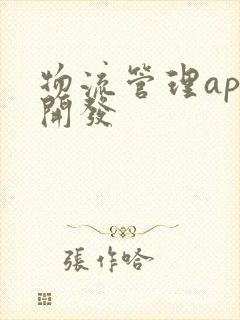 物流管理ap
開發
張作哈